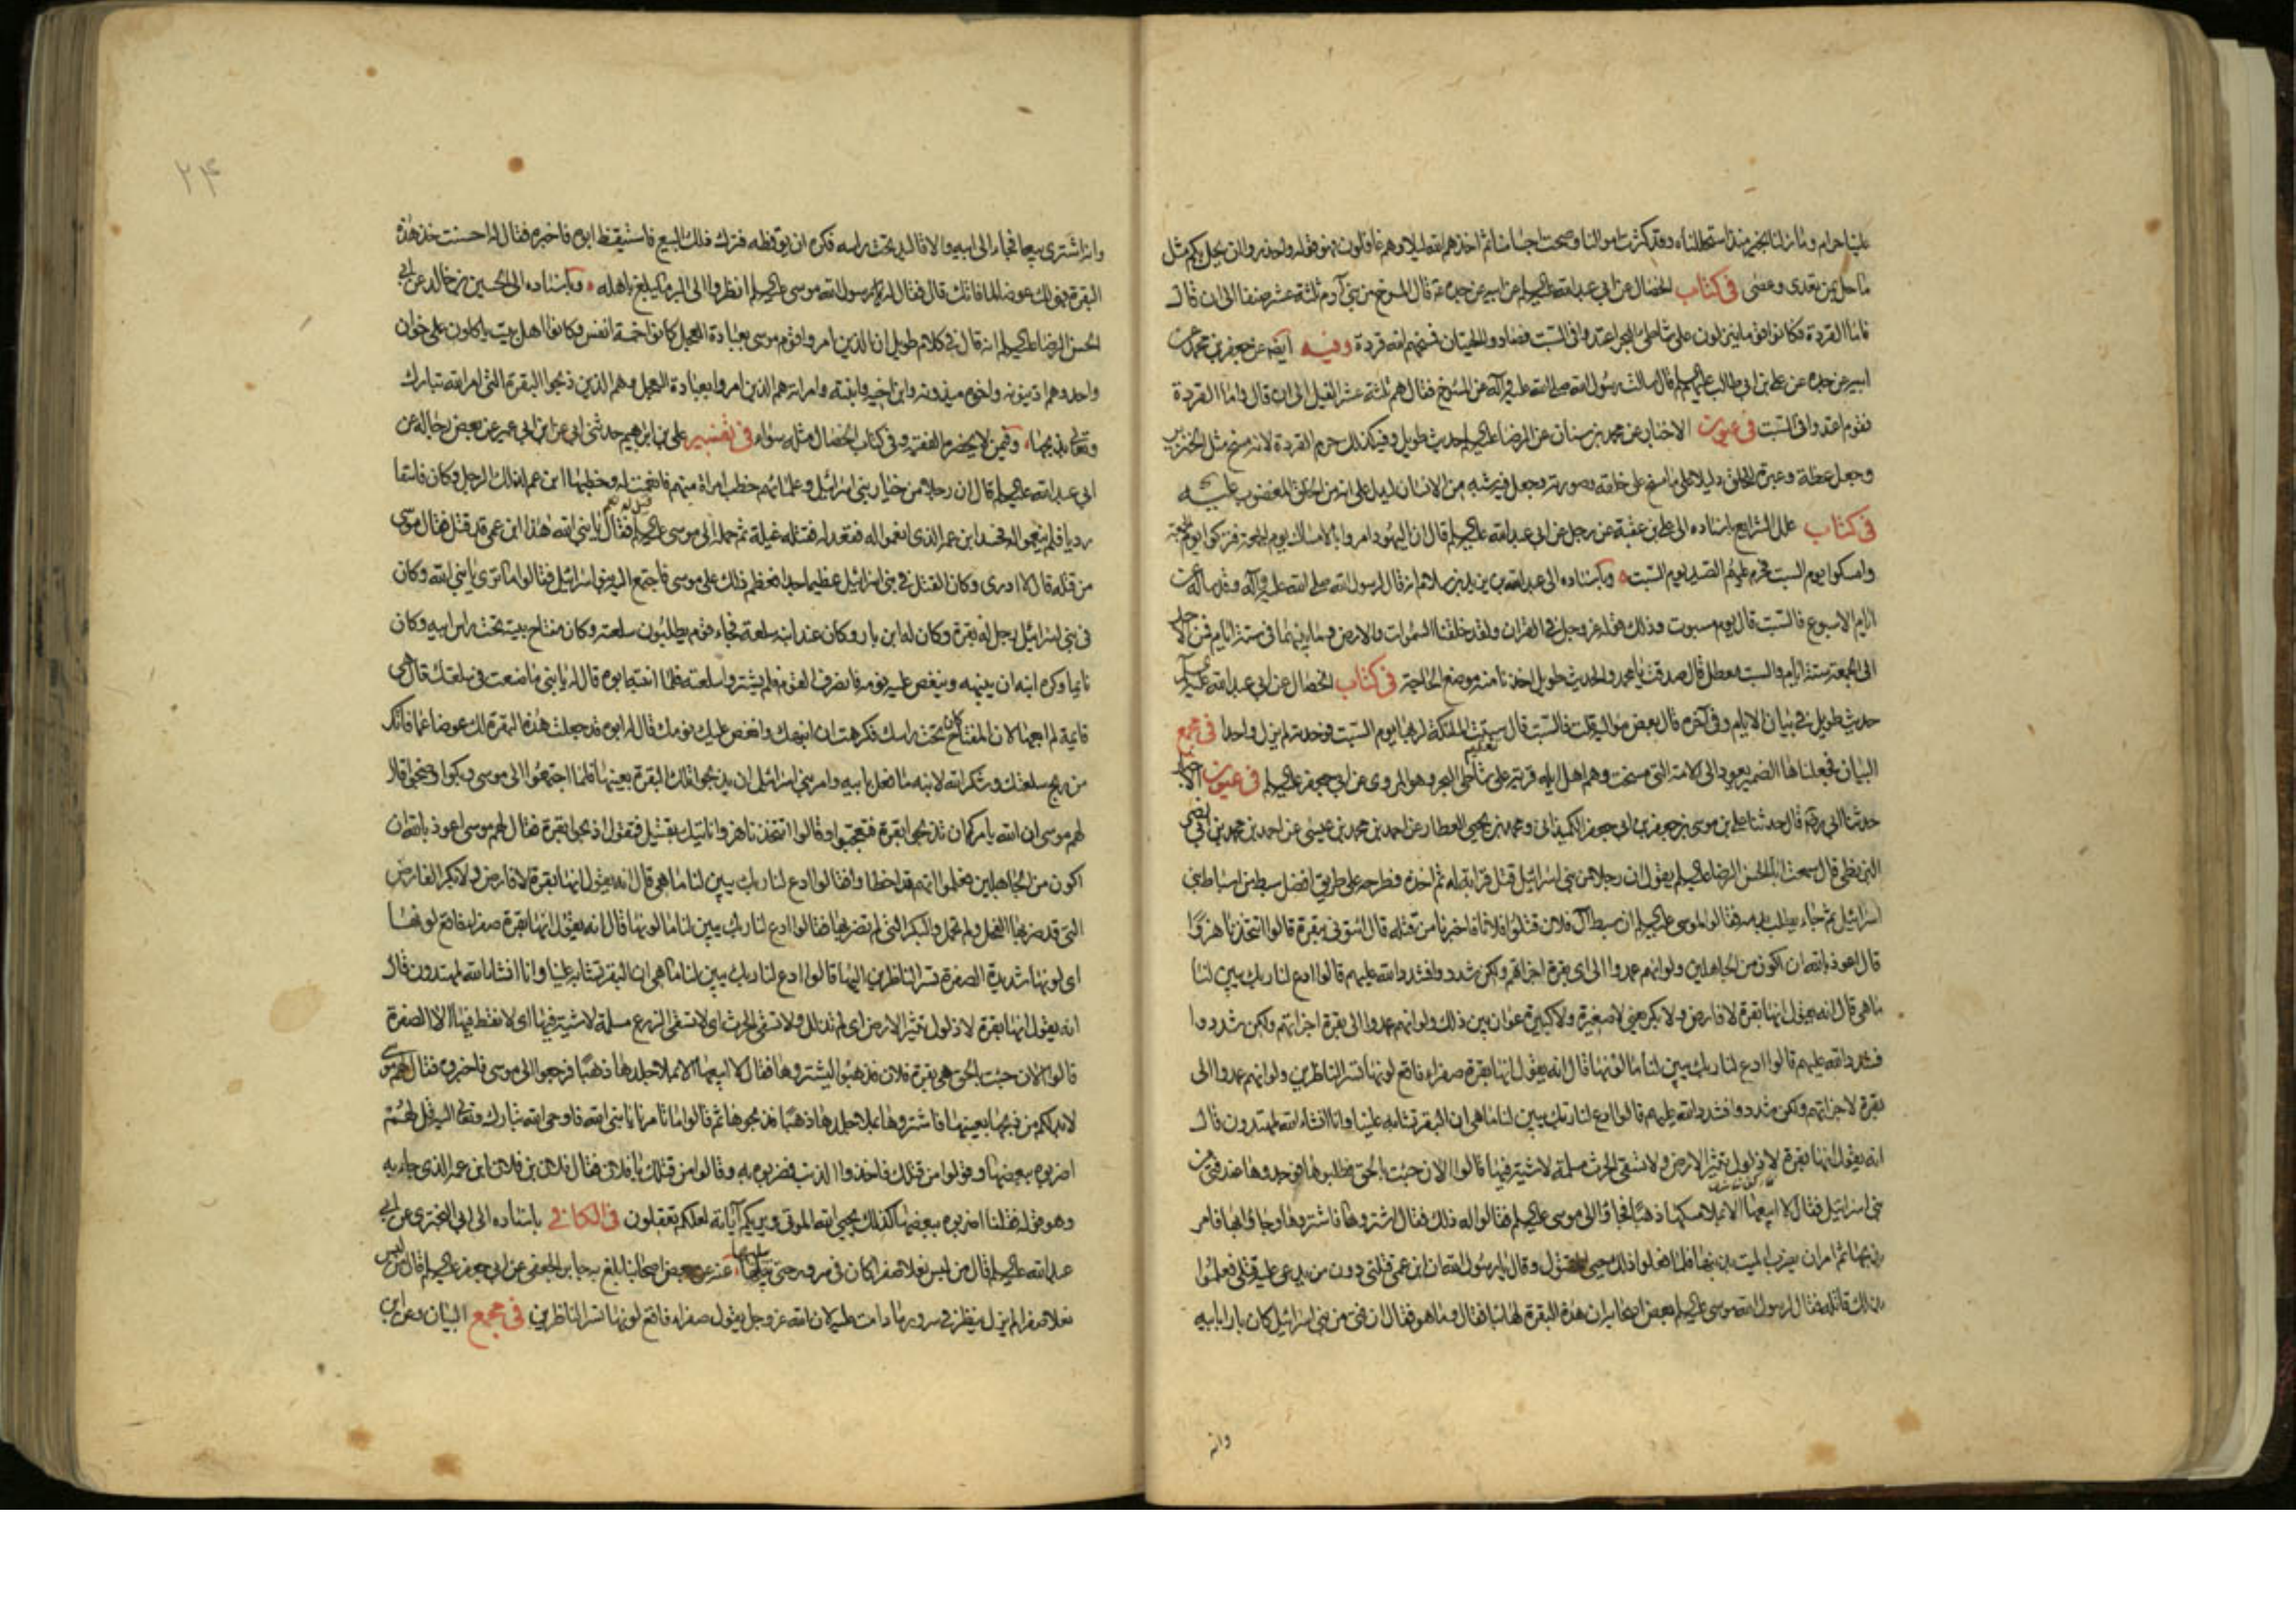 علينا حرام وما زلنا بخير منذ استحللناه وقد كثرت اموالنا وصحت اجسامنا ثم اخذهم الله ليلا وهم غافلون فهو قوله واحذروا ان يحل بكم مثل
ما حل بمن تعدى وعصى في كتاب الخصال عن ابي عبد الله عليه السلم عن ابيه عن جده قال المسوخ من بني آدم ثلثة عشر صنفا الى ان قال
فاما القردة فكانوا قوما ينزلون على شاطئ البحر اعتدوا في السبت فصادوا الحيتان فمسخهم الله قردة وفيه ايضا عن جعفر بن محمد عن
ابيه عن جده عن علي بن ابي طالب عليهم السلم قال سالت رسول الله صلى الله عليه وآله عن المسوخ فقال هم ثلثة عشر الفيل الى ان قال واما القردة
فقوم اعتدوا في السبت في عيون الاخبار عن محمد بن سنان عن الرضا عليه السلم حديث طويل وفيه كذلك حرم القردة لانه مسخ مثل الخنزير
وجعل عظة وعبرة للخلق دليلا على ما مسخ على خلقه وصورته وجعل فيه شبه من الانسان ليدل على انه من الخلق المغضوب عليه
في كتاب علل الشرايع باسناده الى علي بن عقبة عن رجل عن ابي عبد الله عليه السلم قال ان اليهود امروا بالامساك يوم الجمعة فتركوا يوم الجمعة
وامسكوا يوم السبت فحرم عليهم الصيد يوم السبت وباسناده الى عبد الله بن يزيد بن سلام انه قال لرسول الله صلى الله عليه وآله وقد ساله عن
ايام الاسبوع فالسبت قال يوم مسبوت وذلك قوله عز وجل في القران ولقد خلقنا السموات والارض وما بينهما في ستة ايام فمن الاحد
الى الجمعة ستة ايام والسبت معطل قال صدقت يا محمد والحديث طويل اخذنا منه موضع الحاجة في كتاب الخصال عن ابي عبد الله عليه السلم
حديث طويل في بيان الايام وفي آخره قال بعض مواليه قلت فالسبت قال سبتت الملئكة لربها يوم السبت فوجدته لم يزل واحدا في مجمع
البيان فجعلناها الضمير يعود الى الامة التي مسخت وهم اهل ايلة قرية على شاطئ البحر وهو المروي عن ابي جعفر عليه السلم في عيون الاخبار
حدثنا ابي ره قال حدثنا علي بن موسى بن جعفر بن ابي جعفر الكميداني ومحمد بن يحيى العطار عن احمد بن محمد بن عيسى عن احمد بن محمد بن ابي نصر
البزنطي قال سمعت ابا الحسن الرضا عليه السلم يقول ان رجلا من بني اسرائيل قتل قرابة له ثم اخذه فطرحه على طريق افضل سبط من اسباط بني
اسرائيل ثم جاء يطلب بدمه فقالوا لموسى عليه السلم ان سبط آل فلان قتلوا فلانا فاخبرنا من قتله قال ائتوني ببقرة قالوا اتتخذنا هزوا
قال اعوذ بالله ان اكون من الجاهلين ولو انهم عمدوا الى اي بقرة اجزاتهم ولكن شددوا فشدد الله عليهم قالوا ادع لنا ربك يبين لنا
ما هي قال انه يقول انها بقرة لا فارض ولا بكر يعني لا صغيرة ولا كبيرة عوان بين ذلك ولو انهم عمدوا الى بقرة اجزاتهم ولكن شددوا
فشدد الله عليهم قالوا ادع لنا ربك يبين لنا ما لونها قال انه يقول انها بقرة صفراء فاقع لونها تسر الناظرين ولو انهم عمدوا الى
بقرة لاجزاتهم ولكن شددوا فشدد الله عليهم قالوا ادع لنا ربك يبين لنا ما هي ان البقر تشابه علينا وانا انشاء الله لمهتدون قال
انه يقول انها بقرة لا ذلول تثير الارض ولا تسقي الحرث مسلمة لا شية فيها قالوا الان جئت بالحق فطلبوها فوجدوها عند فتى من
بني اسرائيل فقال لا ابيعها الا بملاء مسكها ذهبا فجاؤا الى موسى عليه السلم فقالوا له ذلك فقال اشتروها فاشتروها وجاؤا بها فامر
بذبحها ثم امر ان يضرب الميت بذنبها فلما فعلوا ذلك حيي المقتول وقال يا رسول الله ان ابن عمي قتلني دون من يدعى عليه قتلي فعلموا
بذلك قاتله فقال لرسول الله موسى عليه السلم بعض اصحابه ان هذه البقرة لها نبأ فقال وما هو فقال ان فتى من بني اسرائيل كان بارا بابيه
وانه
٢۴
وانه اشترى بيعا فجاء الى ابيه والاقاليد تحت راسه فكره ان يوقظه فترك ذلك البيع فاستيقظ ابوه فاخبره فقال له احسنت خذ هذه
البقرة فهو لك عوضا لما فاتك قال فقال له رسول الله موسى عليه السلم انظروا الى البر ما يبلغ باهله وباسناده الى الحسين بن خالد عن ابي
الحسن الرضا عليه السلم انه قال في كلام طويل ان الذين امروا قوم موسى بعبادة العجل كانوا خمسة انفس وكانوا اهل بيت ياكلون على خوان
واحد وهم اذينونه واخوه ميذونه وابن اخيه وابنته وامراته هم الذين امروا بعبادة العجل وهم الذين ذبحوا البقرة التي امر الله تبارك
وتعالى بذبحها وفيمن لا يحضره الفقيه وفي كتاب الخصال مثله سواء في تفسير علي بن ابرهيم حدثني ابي عن ابن ابي عمير عن بعض رجاله عن
ابي عبد الله عليه السلم قال ان رجلا من خيار بني اسرائيل وعلمائهم خطب امراة منهم فانعمت له وخطبها ابن عم لذلك الرجل وكان فاسقا
رديا فلم ينعموا له فحسد ابن عمه الذي انعموا له فقعد له فقتله غيلة ثم حمله الى موسى عليه السلم فقال يا نبي الله هذا ابن عمي قد قتل فقال موسى
من قتله قال لا ادري وكان القتل في بني اسرائيل عظيما جدا فعظم ذلك على موسى فاجتمع اليه بنو اسرائيل فقالوا ما ترى يا نبي الله وكان
في بني اسرائيل رجل له بقرة وكان له ابن بار وكان عند ابنه سلعة فجاء قوم يطلبون سلعته وكان مفتاح بيته تحت راس ابيه وكان
نايما وكره ابنه ان ينبهه وينغص عليه نومه فانصرف القوم فلم يشتروا سلعته فلما انتبه ابوه قال له يا بني ما صنعت في سلعتك قال هي
قائمة لم ابعها لان المفتاح كان تحت راسك فكرهت ان انبهك وانغص عليك نومك قال له ابوه قد جعلت هذه البقرة لك عوضا عما فاتك
من ربح سلعتك وشكر الله لابنه ما فعل بابيه وامر بني اسرائيل ان يذبحوا تلك البقرة بعينها فلما اجتمعوا الى موسى وبكوا وضجوا قال
لهم موسى ان الله يامركم ان تذبحوا بقرة فتعجبوا وقالوا اتتخذنا هزوا ناتيك بقتيل فتقول اذبحوا بقرة فقال لهم موسى اعوذ بالله ان
اكون من الجاهلين فعلموا انهم قد اخطاوا فقالوا ادع لنا ربك يبين لنا ما هي قال انه يقول انها بقرة لا فارض ولا بكر الفارض
التي قد ضربها الفحل ولم تحمل والبكر التي لم يضربها فقالوا ادع لنا ربك يبين لنا ما لونها قال انه يقول انها بقرة صفراء فاقع لونها
اي لونها شديدة الصفرة تسر الناظرين اليها قالوا ادع لنا ربك يبين لنا ما هي ان البقر تشابه علينا وانا انشاء الله لمهتدون قال
انه يقول انها بقرة لا ذلول تثير الارض اي لم تذلل ولا تسقي الحرث اي لا تسقي الزرع مسلمة لا شية فيها اي لا نقط فيها الا الصفرة
قالوا الان جئت بالحق هي بقرة فلان فذهبوا ليشتروها فقال لا ابيعها الا بملاء جلدها ذهبا فرجعوا الى موسى فاخبروه فقال لهم موسى
لا بد لكم من ذبحها بعينها فاشتروها بملاء جلدها ذهبا فذبحوها ثم قالوا ما تامرنا يا نبي الله فاوحى الله تبارك وتعالى اليه قل لهم
اضربوه ببعضها وقولوا من قتلك فاخذوا الذنب فضربوه به وقالوا من قتلك يا فلان فقال فلان بن فلان ابن عمه الذي جاء به
وهو قوله فقلنا اضربوه ببعضها كذلك يحيي الله الموتى ويريكم آياته لعلكم تعقلون في الكافي باسناده الى ابي البختري عن ابي
عبد الله عليه السلم قال من لبس نعلا صفرا كان في سرور حتى يبليها عنه عن بعض اصحابنا بلغ به جابر الجعفي عن ابي جعفر عليه السلم قال من لبس
نعلا صفرا لم يزل ينظر في سرور ما دامت عليه لان الله عز وجل يقول صفراء فاقع لونها تسر الناظرين في مجمع البيان وعن ابن